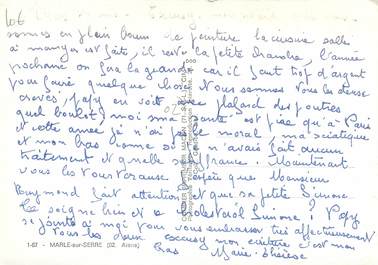 sommes en plein boum de peinture la cuisine salle
à manger est faite, il reste la petite chambre, l'année
prochaine on fera la grande car il faut trop d'argent
pour faire quelque chose Nous sommes tous les deux
crevés, papy en soit avec plafard des poutres
quel boulot, moi ma santé est pire qu'à Paris
et cette année je n'ai pas le moral ma sciatique
et mon bras comme si je n'avais fait aucun
traitement et quelle souffrance. Maintenant
vous les Tourtereaux. J'espère que Monsieur
Raymond fait attention et que sa petite Simone
le soigne bien et le cholestérol Simone ? Papy
se joint à moi pour vous embrasser très affectueusement
Tous les deux excusez mon écriture c'est mon
bras Marie-Thérèse
1-67 - MARLE-sur-SERRE (02. Aisne)